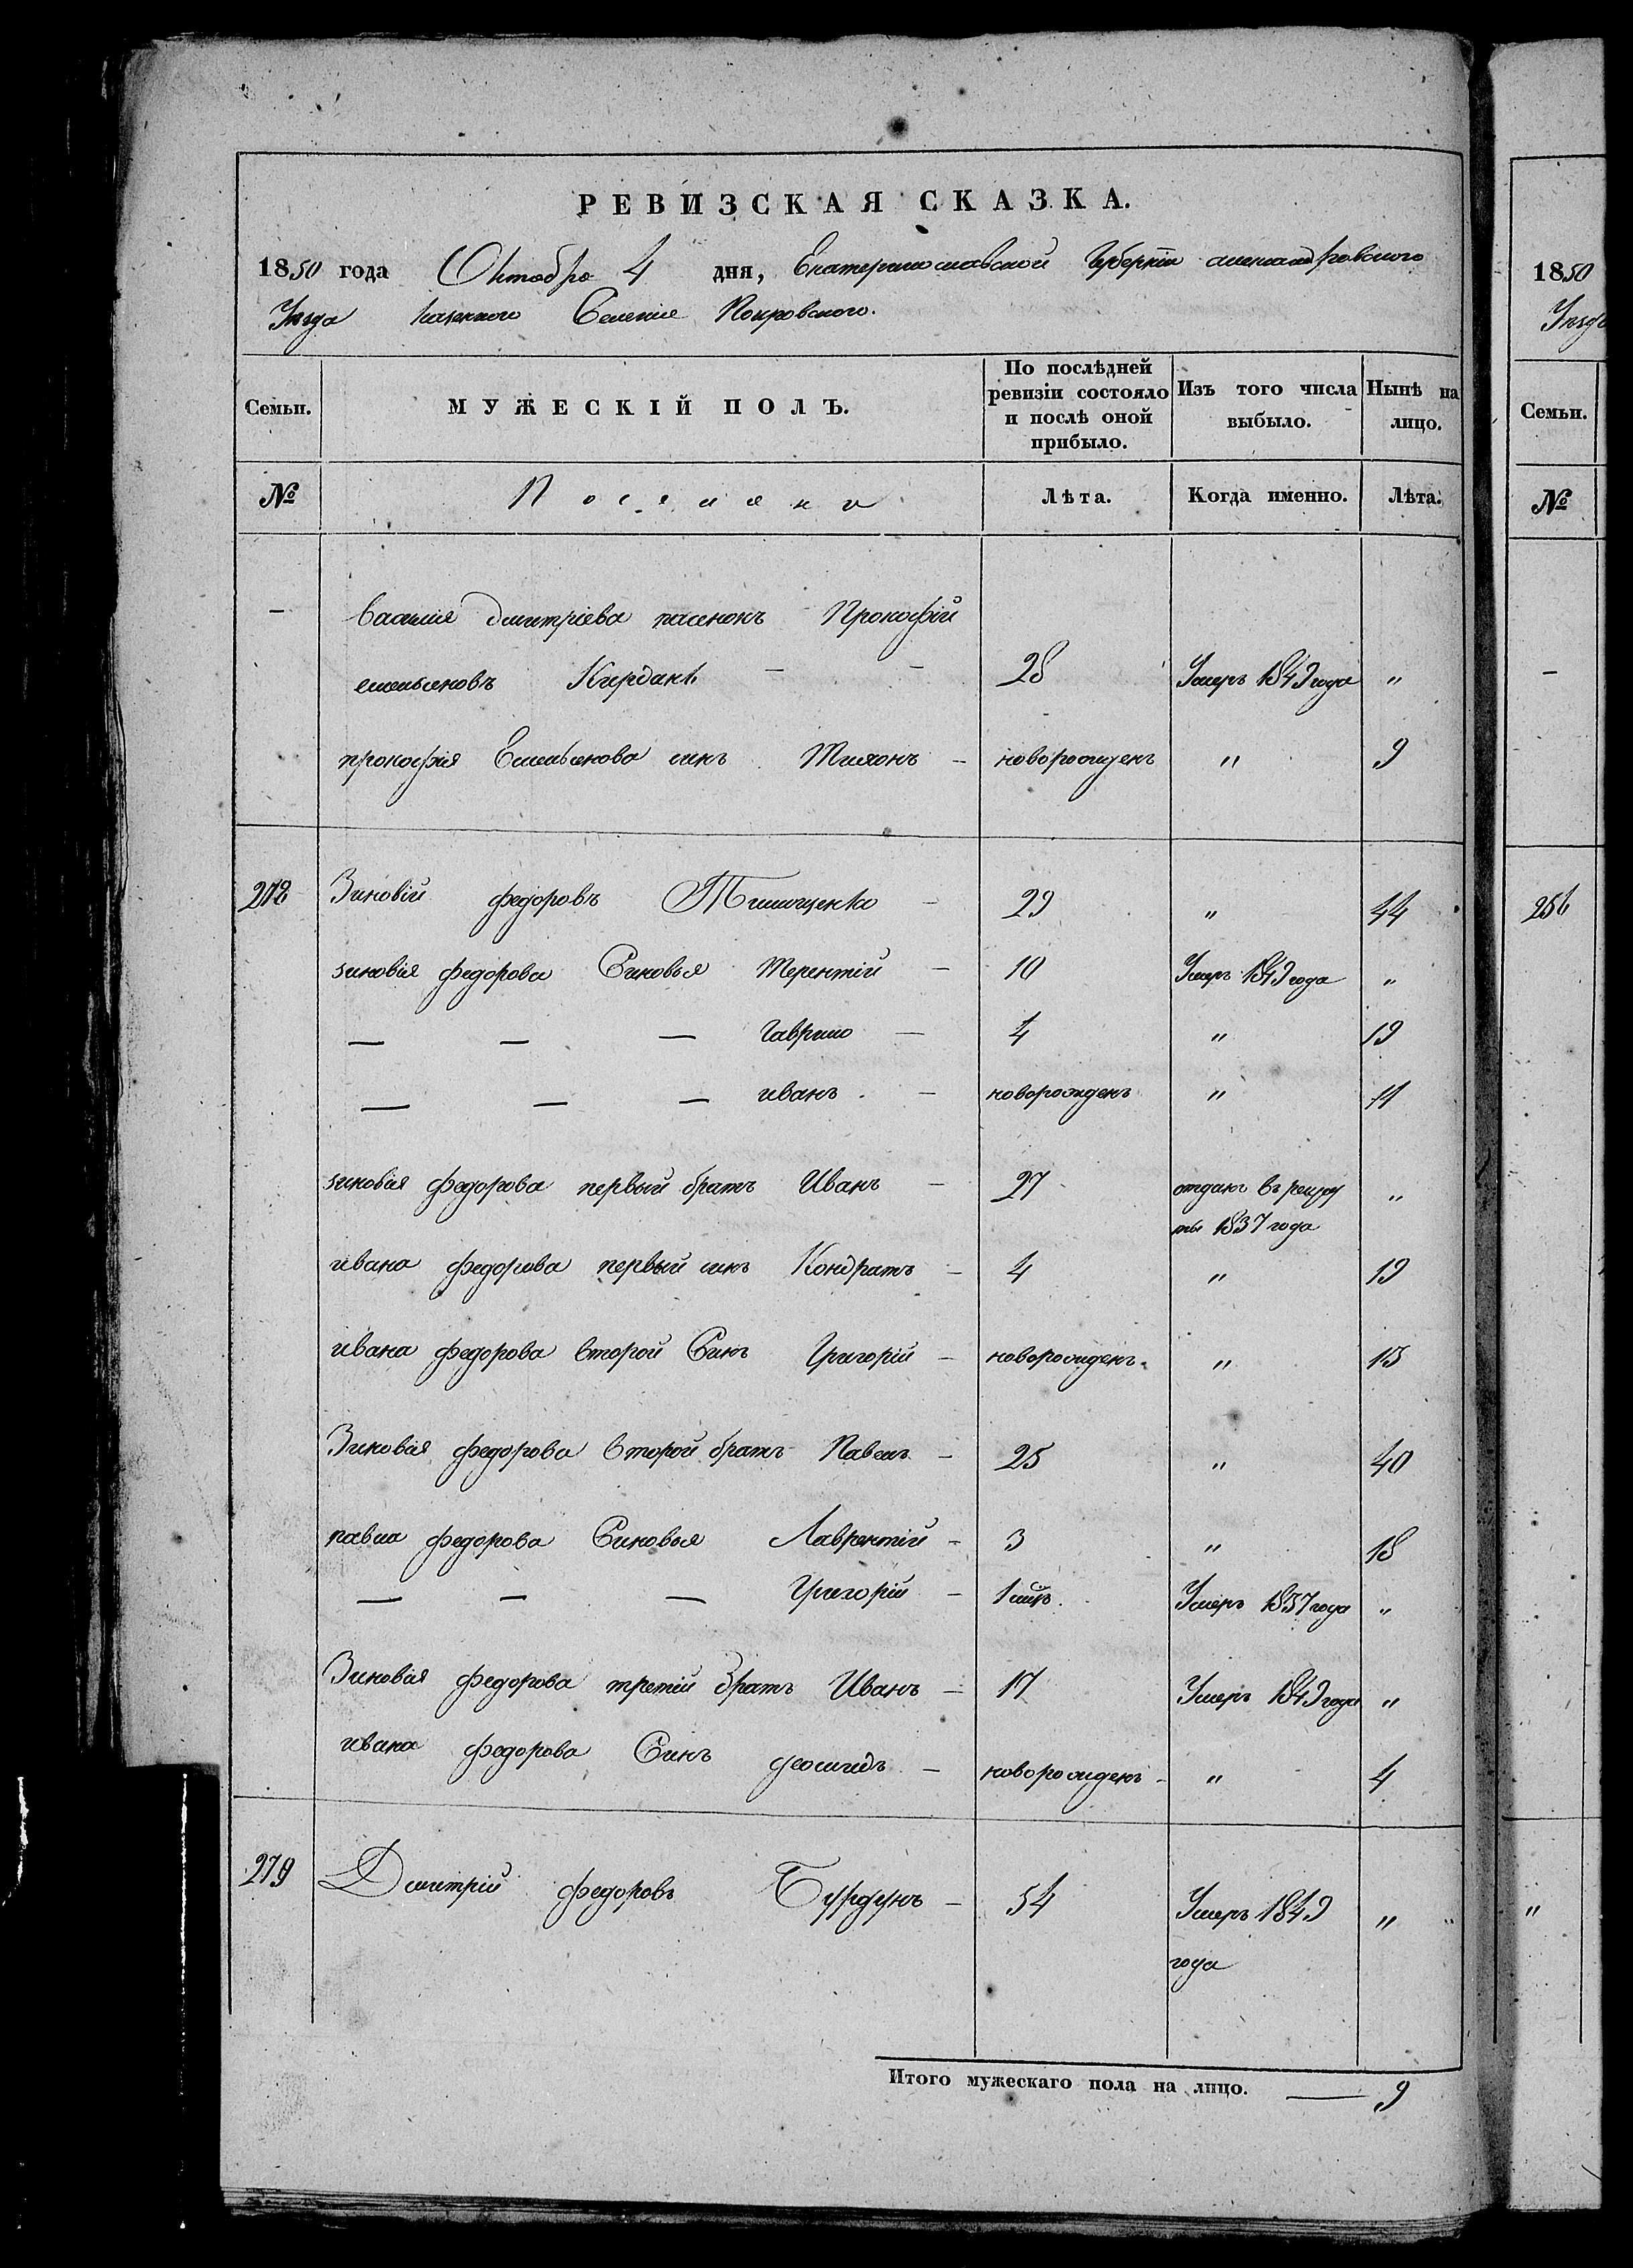 РЕВИЗСКАЯ СКАЗКА.
1850 года Октобра 4 дня, Екатеринославской Губернiи александровского
Уѣзда казенного Селенiя Покровского.
Семьи. МУЖЕСКIЙ ПОЛЪ. По послѣдней ревизiи состояло и послѣ оной прибыло. Изъ того числа выбыло. Нынѣ на лицо.
№ Поселяне Лѣта. Когда именно. Лѣта.
— Василiя дмитрiева пасенокъ Прокофiй
емельяновъ Кирданъ — — 28 Умеръ 1849 года "
прокофiя Емельянова синъ Тихонъ — новорожденъ " 9
Зиновiй федоровъ Тимощенко — 29 " 44
зиновiя федорова Синовья Терентiй — 10 Умеръ 1849 года "
— — — Гаврило — 4 " 19
— — — иванъ — новорожденъ " 11
зиновiя федорова первый братъ Иванъ — 27 отданъ въ рекру "
ты 1837 года
ивана федорова первый синъ Кондратъ — 4 " 19
ивана федорова второй Синъ Григорiй — новорожденъ " 15
Зиновiя федорова второй братъ Павелъ — 25 " 40
павла федорова Синовья Лаврентiй — 3 " 18
— — — Григорiй — 1 Умеръ 1837 года "
Зиновiя федорова третiй братъ Иванъ — 17 Умеръ 1849 года "
ивана федорова Синъ — новорожденъ — " 4
279 Дмитрiй федоровъ — 54 Умеръ 1849 "
года
Итого мужескаго пола на лицо. — 9
1850
Уѣзд
Семьи.
№
—
256
"